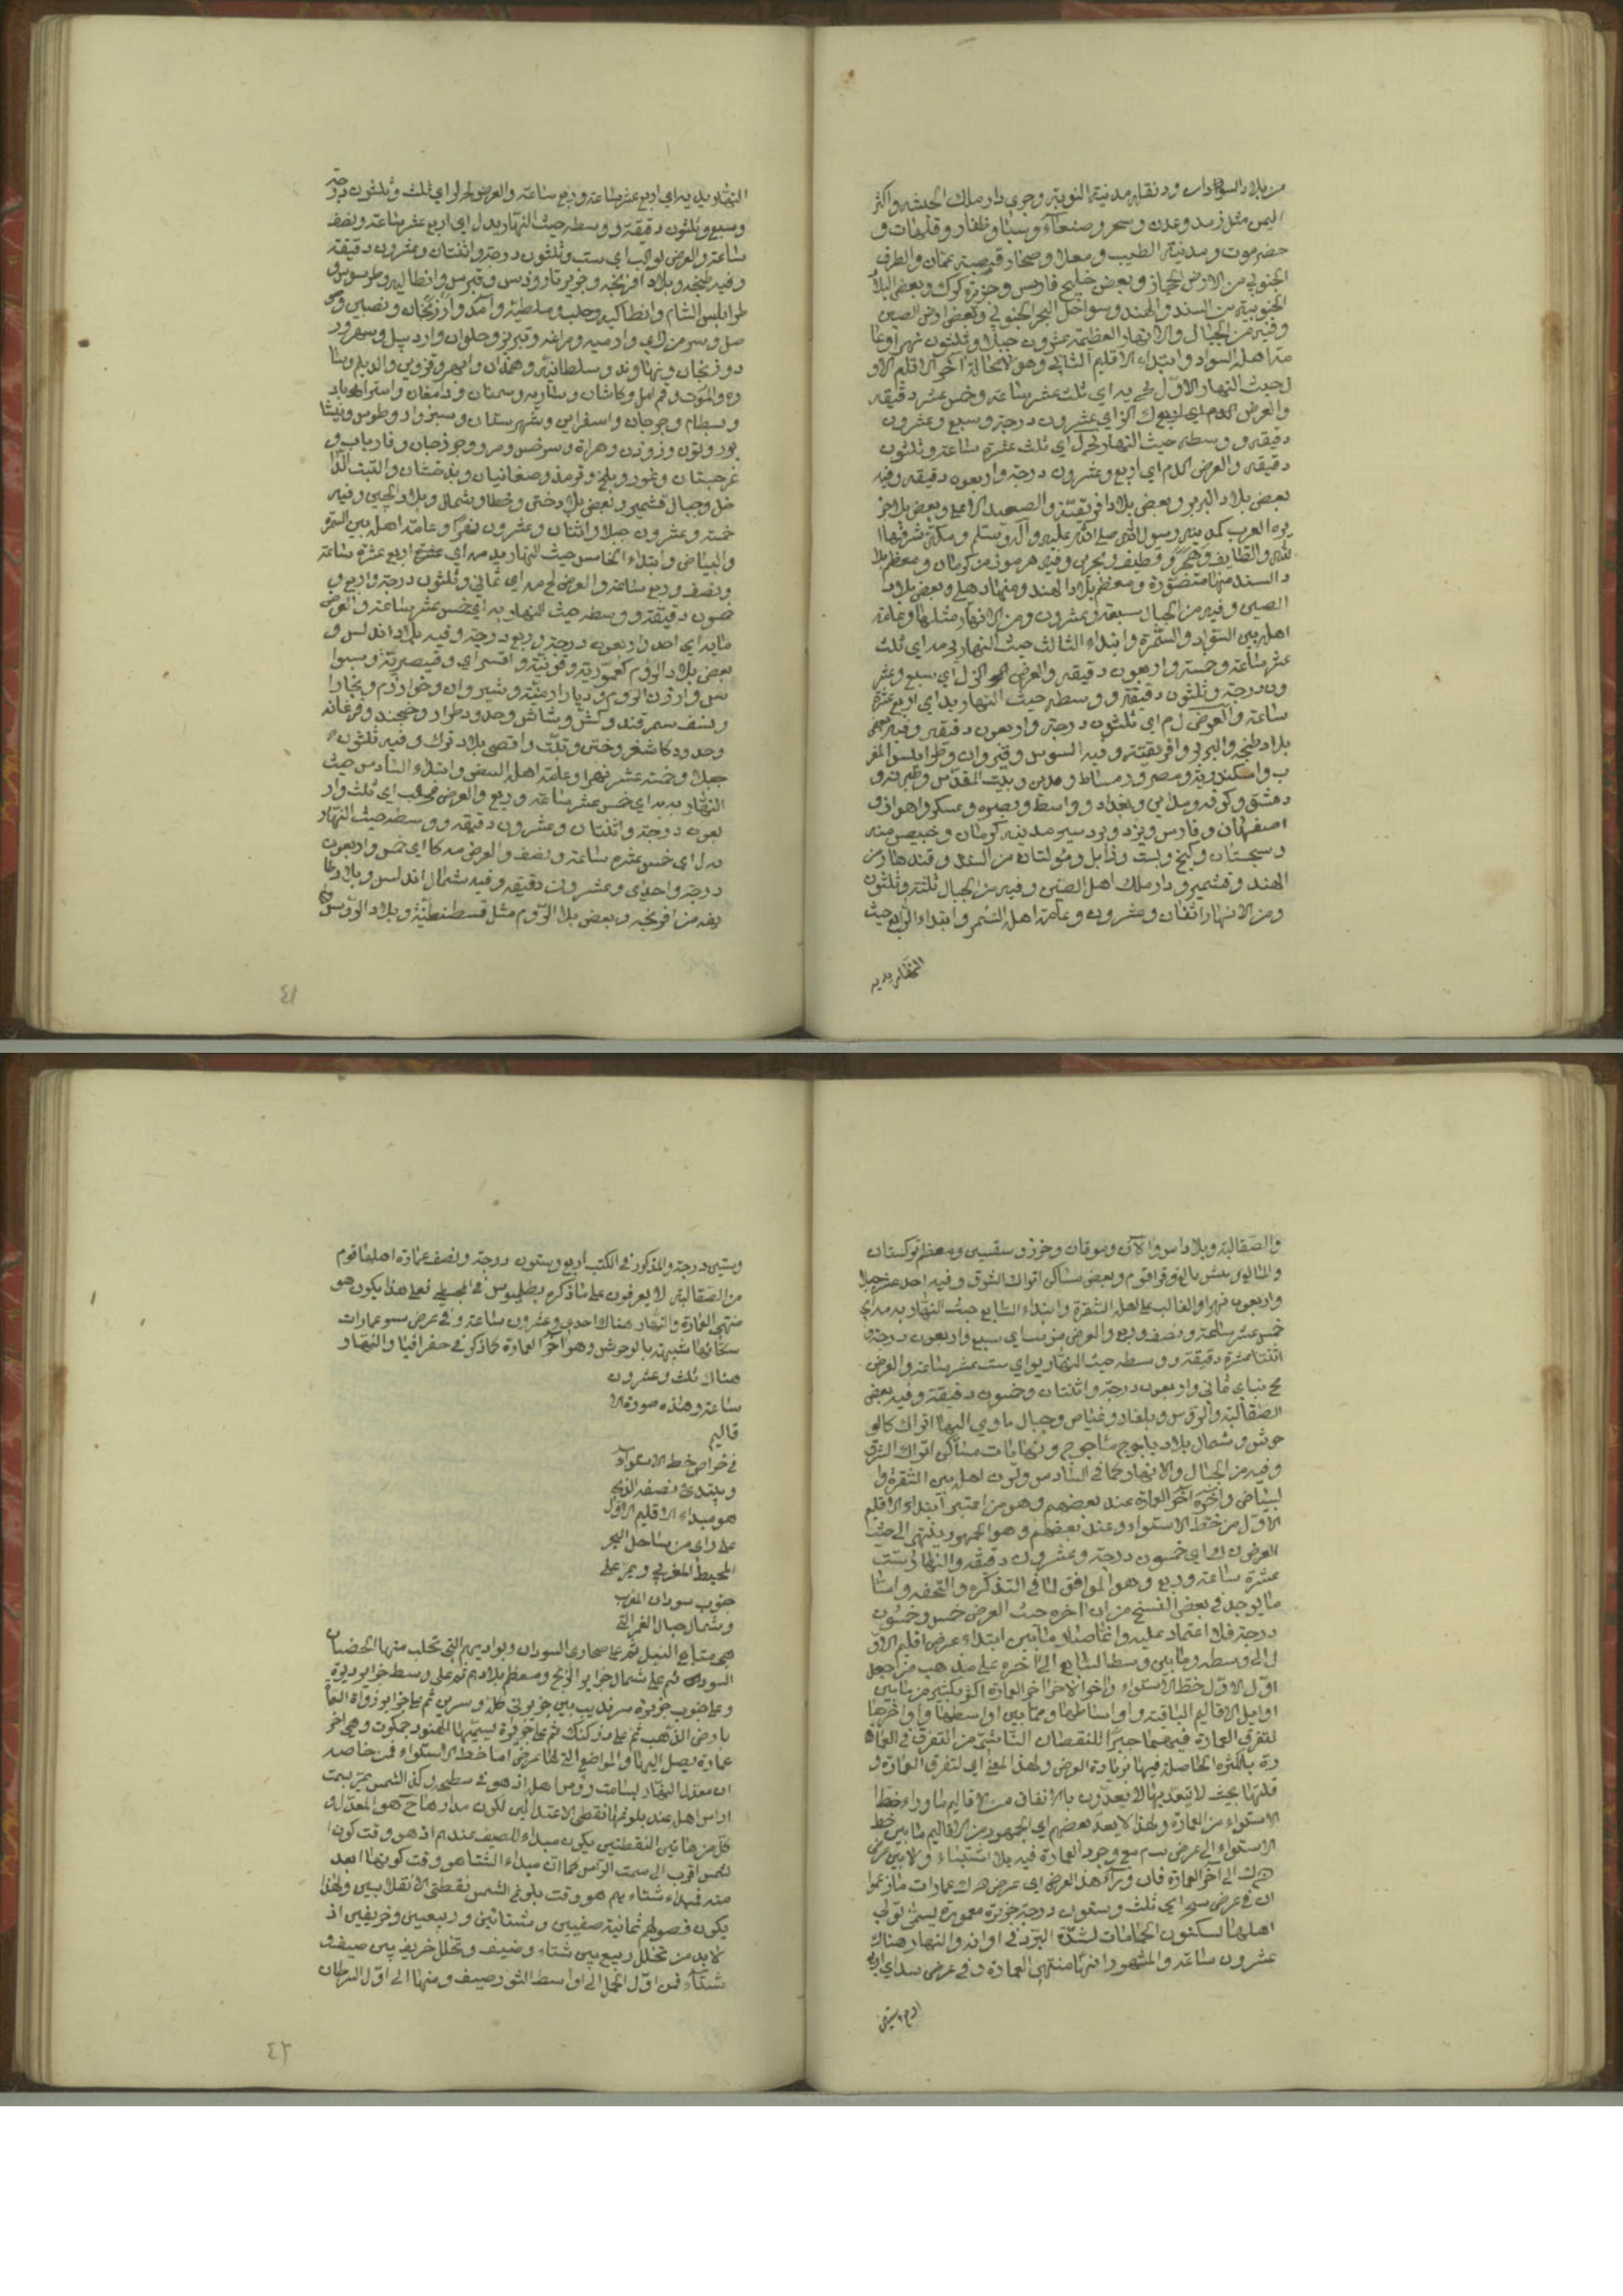 من بلاد السودان ودنقله مدنية النوبة وجرى دار ملك الحبشه واكثر
اليمن مثل زبيد وعدن وشحر وصنعآء وسبا وظفار وقلهات و
حضرموت ومدنية الطيب ومعلا وصحار قصبة عمان والطرف
الجنوبي من الارض الحجاز وبعض خليج فارس وجزيرة كرك وبعض البلاد
الجنوبية من السند والهند وسواحل البحر الجنوبي وبعض ارض الصين
وفيه من الجبال والانهار العظيمة عشرون جبلا وثلثون نهرا وعا
مة اهله السواد وابتداء الاقليم الثاني وهو لامحالة آخر الاقليم الاو
ل حيث النهار الاول يج يه اي ثلث عشر ساعة وخمس عشر دقيقه
والعرض اي عشرون درجة وسبع وعشرون
دقيقه ووسطه حيث النهار يج ل اي ثلث عشرة ساعة وثلثون
دقيقه والعرض كد م اي اربع وعشرون درجة واربعون دقيقه وفيه
بعض بلاد البربر وبعض بلاد افريقية والصعيد الاعلى وبعض بلاد جز
يره العرب كمدينه رسول الله صلى الله عليه وآله وسلم ومكة شرفها ا
لله والطايف وهجر وقطيف وبحرين وفيه هرموز من كرمان ومعظم بلا
د السند منها منصورة ومعظم بلاد الهند ومنها دهلي وبعض بلاد
الصين وفيه من الجبال سبعة وعشرون ومن الانهار مثلها وعامة
اهله بين السواد والسمرة وابتداء الثالث حيث النهار يج مه اي ثلث
عشر ساعة وخمسة واربعون دقيقه والعرض كز ل اي سبع وعشر
ون درجة وثلثون دقيقة ووسطه حيث النهار يد اي اربع عشرة
ساعة والعرض ل م اي ثلثون درجة واربعون دقيقه وفيه بعض
بلاد طنجه والبربر وافريقية وفيه السوس وقيروان وطرابلس المغر
ب واسكندرية ومصر ودمياط ومدين وبيت المقدس وطبرية و
دمشق وكوفه ومداين وبغداد وواسط وبصره وعسكر واهواز و
اصفهان وفارس ويزد وبردسير مدينه كرمان وخبيص منه
وسجستان وكيج وبست وزابل ومولتان من السند وقندهار من
الهند وقشمير ودار ملك اهل الصين وفيه من الجبال ثلثة وثلثون
ومن الانهار اثنان وعشرون وعامة اهله السمر وابتداء الرابع حيث
النهار يد يه
النهار يد يه اي اربع عشر ساعة وربع ساعة والعرض لج لز اي ثلث وثلثون درجة
وسبع وثلثون دقيقة ووسطه حيث النهار يد ل اي اربع عشر ساعة ونصف
ساعة والعرض لو كب اي ست وثلثون درجة واثنتان وعشرون دقيقة
وفيه طنجه وبلاد افرنجه وجزيرتا رودس وقبرس وانطاليه وطرسوس و
طرابلس الشام وانطاكيه وحلب وملطيه وآمد وارزنجان ونصيبين ومو
صل وسر من راي وارميه ومراغه وتبريز وحلوان واردبيل وسهرور
د وزنجان ونهاوند وسلطانية وهمدان وابهر وقزوين والديلم وسا
وه والموت وقم امل وكاشان وساريه وسمنان ودامغان واستراباد
وبسطام وجرجان واسفراين وشهرستان وسبزوار وطوس ونيشا
بور وتون وزوزن وهراة وسرخس ومرو وجوزجان وفارياب و
غرجستان وغور وبلخ وترمذ وصغانيان وبدخشان والتبت الدا
خل وجبال قشمير وبعض بلاد ختن وخطا وشمال وبلاد الچين وفيه
خمسة وعشرون جبلا واثنان وعشرون نهرا وعامة اهله بين السمرة
والبياض وابتداء الخامس حيث النهار يد مه اي اربع عشرة ساعة
ونصف وربع ساعة والعرض لح مد اي ثماني وثلثون درجة واربع و
خمسون دقيقة ووسطه حيث النهار يه اي خمس عشر ساعة والعرض
ما يه اي احد واربعون درجة وربع درجة وفيه بلاد اندلس و
بعض بلاد الروم كعموريه وقونية واقسراي وقيصرية وسيوا
س وارزن الروم وديار ارمنية وشيروان وخوارزم وبخارا
ونسف سمرقند وكش وشاش وحدود طراز وخجند وفرغانه
وحدود كاشغر وختن وتبّت واقصى بلاد ترك وفيه ثلثون
جبلا وخمسة عشر نهرا وعامة اهله البيض وابتداء السادس حيث
النهار يه يه اي خمس عشر ساعة وربع والعرض مج كب اي ثلث وار
بعون درجة واثنتان وعشرون دقيقه ووسطه حيث النهار
يه ل اي خمس عشره ساعة ونصف والعرض مه كا اي خمس واربعون
درجة واحدى وعشرون دقيقه وفيه شمال اندلس وبلاد طا
يفه من افرنجه وبعض بلاد الروم مثل قسطنطنية وبلاد الروس
٤١
والصقالبة وبلاد اس والآن وموقان وخزر وسقسين ومعظم تركستان
والماليق وبيش بالغ وقراقوم وبعض مساكن اتراك الشرق وفيه احد عشر جبلا
واربعون نهرا والغالب على اهله الشقرة وابتداء السابع حيث النهار يه مه اي
خمس عشر ساعة ونصف وربع والعرض مز يب اي سبع واربعون درجة و
اثنتا عشرة دقيقة ووسطه حيث النهار يو اي ست عشر ساعة والعرض
مح نب اي ثماني واربعون درجة واثنتان وخمسون دقيقة وفيه بعض
الصقالبة والروس وبلغار وغياض وجبال ماوي اليها اتراك كالو
حوش وشمال بلاد ياجوج ماجوج ونهايات مساكن اتراك الشرق
وفيه من الجبال والانهار كما في السادس ولون اهله بين الشقرة وا
لبياض وآخره آخر العمارة عند بعضهم وهو من اعتبر ابتداء الاقليم
الاول من خط الاستواء وعند بعضهم وهو الجمهور ينتهى الى حيث
العرض ن ك اي خمسون درجة وعشرون دقيقه والنهار ست
عشرة ساعة وربع وهو الموافق لما في التذكره والتحفه واما
ما يوجد في بعض النسخ من ان اخره حيث العرض خمس وخمسون
درجة فلا اعتماد عليه وانما صار ما بين ابتداء عرض اقليم الاو
ل الى وسطه وما بين وسط السابع الى آخره على مذهب من جعل
اول الاول خط الاستواء وآخر الآخر اخر العمارة اكثر بكثير من ما بين
اوايل الاقاليم الباقية واواسطها وما بين اواسطها واواخرها
لتفرق العمارة فيهما جبرا للنقصان الناشئ من التفرق في العما
رة بالكثره الحاصله فيها بزيادة العرض ولهذا المعنى اي لتفرق العمارة و
قلتها بحيث لاتعد بها لا يعدون بالاتفاق من الاقاليم ماوراء خط
الاستواء من العمارة ولهذا لا يعد بعضهم اي الجمهور من الاقاليم ما بين خط
الاستواء الى عرض يب م مع وجود العمارة فيه بلا اشتباه ولا بين عرض
ن ك الى آخر العمارة فان ورآء هذا العرض اي عرض ن ك عمارات ما زعموا
ان في عرض سج اي ثلث وستون درجة جزيرة معمورة يسمى تولي
اهلها يسكنون الحمامات لشدة البرد في اوانه والنهار هناك
عشرون ساعة والمشهور انها منتهى العمارة وفي عرض سد اي اربع
وستين درجة والمذكور في الكتب اربع وستون درجة ونصف عمارة اهلها قوم
من الصقالبه لا يعرفون على ما ذكره بطلميوس في المجسطي فعلى هذا يكون هو
منتهى العمارة والنهار هناك احدى وعشرون ساعة وفي عرض سو عمارات
سكانها شبيهة بالوحوش وهو آخر العمارة كما ذكر في جغرافيا والنهار
هناك ثلث وعشرون
ساعة وهذه صورة الا
قاليم
في خواص خط الاستواء
ويبتدئ نصفه الذي
هو مبداء الاقليم الاول
على راي من ساحل البحر
المحيط المغربي ويمر على
جنوب سودان المغرب
وشمال جبال القمر التي
هي منابع النيل ثم على صحاري السودان وبواديهم التي تجلب منها الخصيان
السود ثم على شمال جزاير الزنج ومعظم بلادهم ثم على وسط جزاير ديوة
وعلى جنوب جزيرة سرنديب بين جزيرتي كله وسريرة ثم على جزاير زواة المسما
بارض الذهب ثم على دز كنك ثم على جزيرة يسميها الهنود جمكوت وهي اخر
عمارة يصل اليها والمواضع التي لا عرض اما خط الاستواء فمن خاصه
ان معدل النهار يسامت رؤس اهله اذ هو في سطحه وكذا الشمس يمر بسمت
راس اهله عند بلوغها نقطتي الاعتدالين لكون مدارها ح هو المعدل و
كل من هاتين النقطتين يكون مبداء الصيف عندهم اذ هو وقت كون ا
لشمس اقرب الى سمت الراس كما ان مبداء الشتا هو وقت كونها ابعد
منه فمبداء شتاءهم هو وقت بلوغ الشمس نقطتي الانقلابين ولهذا
يكون فصولهم ثمانية صيفين وشتائين وربيعين وخريفين اذ
لابد من تخلل ربيع بين شتاء وصيف وتخلل خريف بين صيف و
شتآء فمن اول الحمل الى اواسط الثور صيف ومنها الى اول السرطان
٤٢